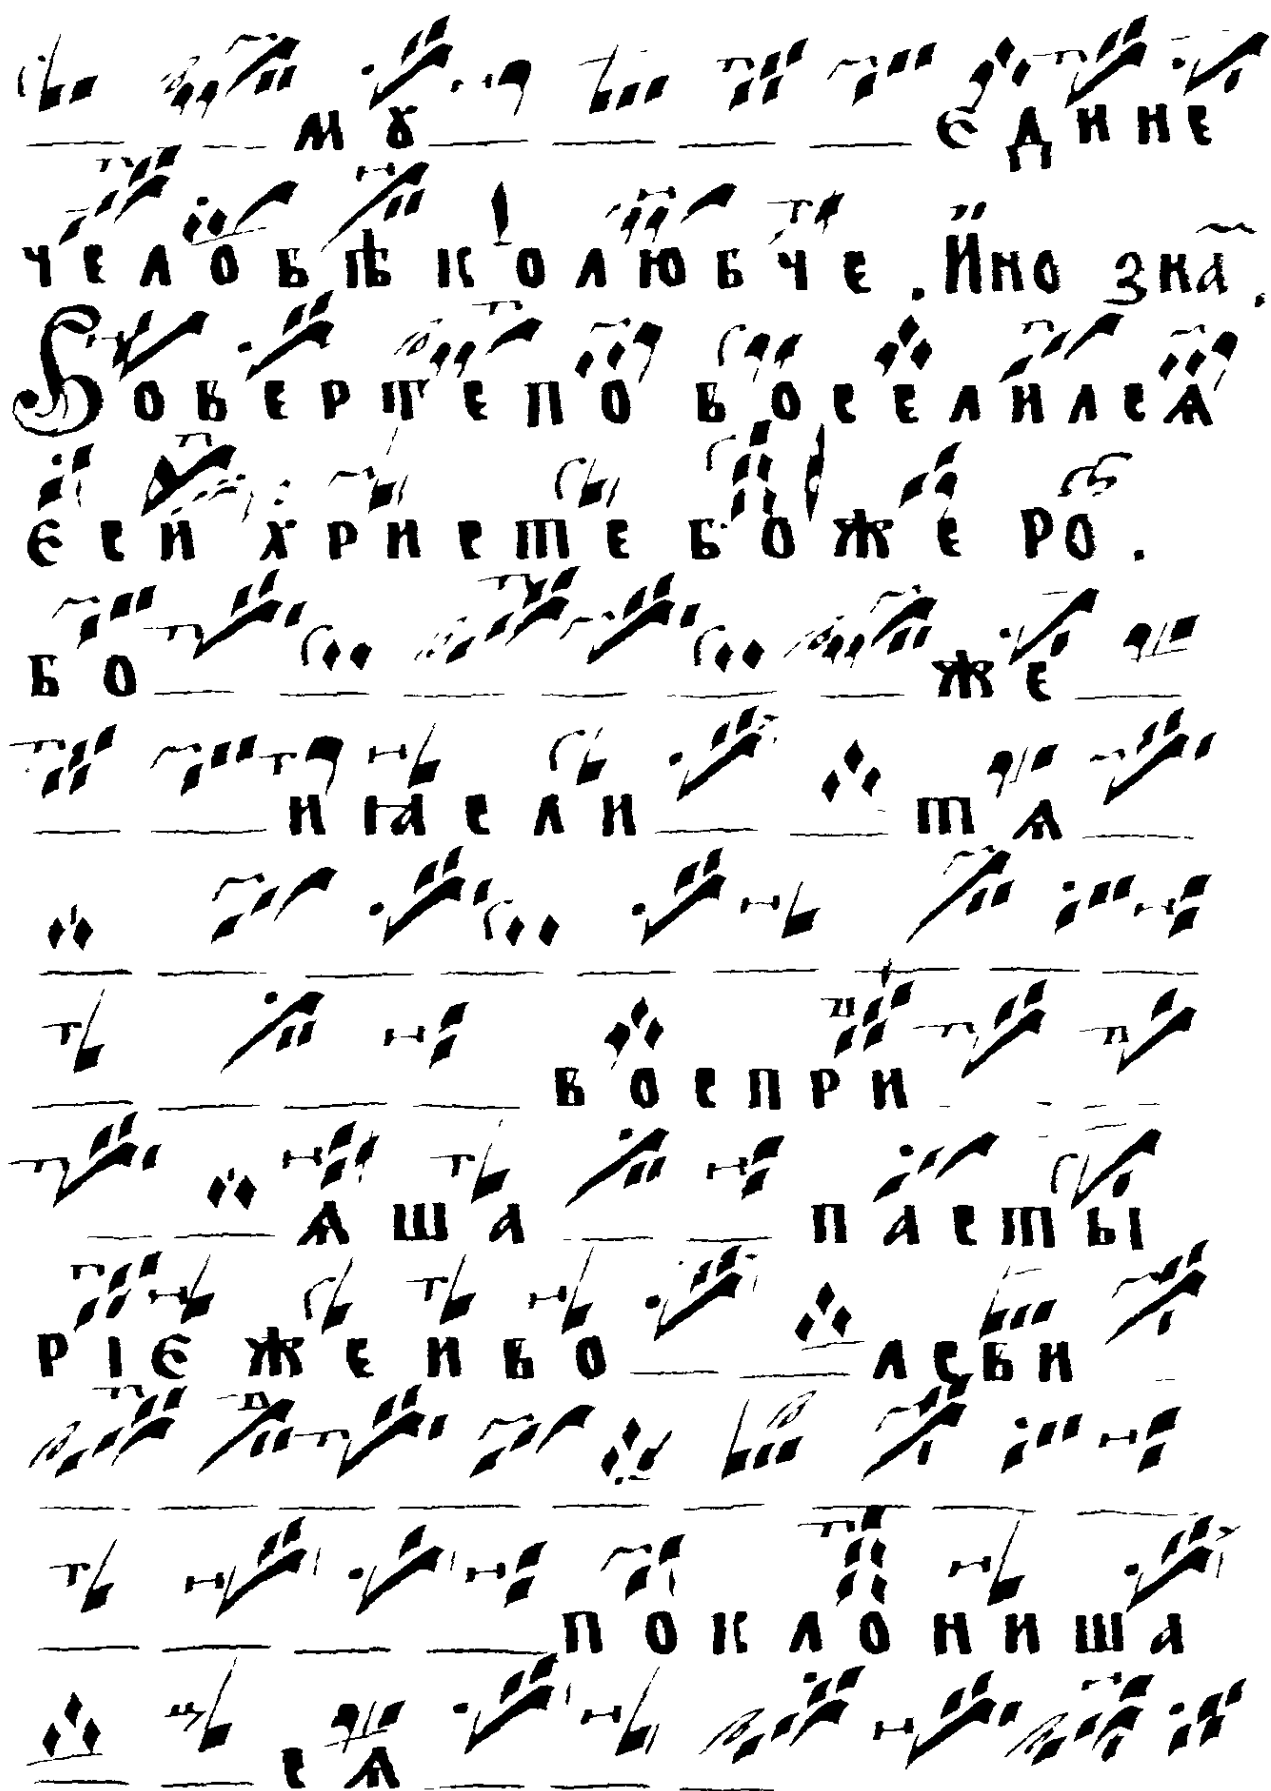 мꙋ єдине
человѣколюбче . Ино зна .
Вовертепо воселилсѧ
єси христе боже ро .
бо же
и ꙗсли тѧ
воспри
ѧша пасты
ріє же и во лсви
поклониша
сѧ